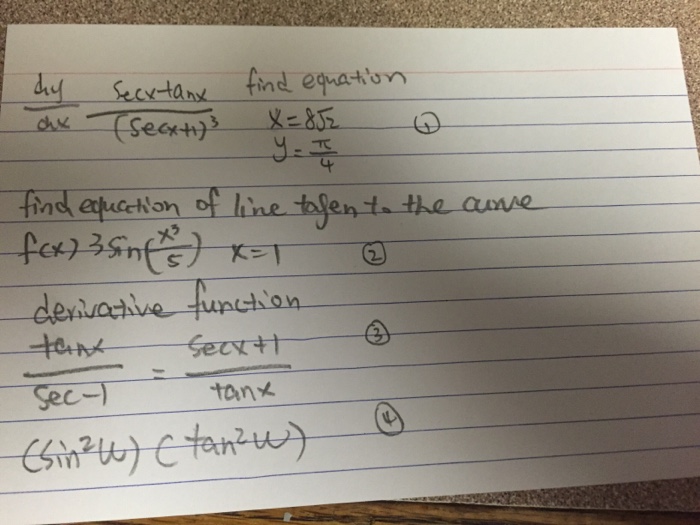 dy/dx secx tanx/(secx+1)³ find equation
x=8√2 ①
y=π/4
find equation of line tagen to the curve
f(x) 3sin(x³/5) x=1 ②
derivative function
tanx/sec-1 = secx+1/tanx ③
(sin²W)(tan²W) ④